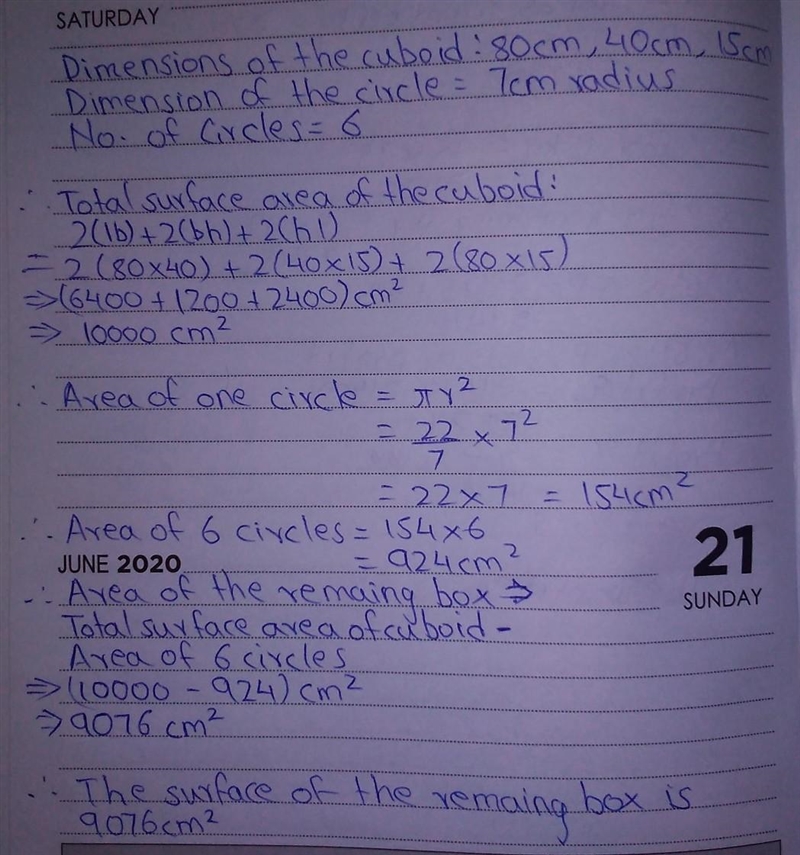 SATURDAY
Dimensions of the cuboid: 80cm, 40cm, 15cm
Dimension of the circle = 7cm radius
No. of Circles = 6
∴ Total surface area of the cuboid:
2(lb)+2(bh)+2(hl)
= 2(80×40) + 2(40×15) + 2(80×15)
⇒ (6400+1200+2400)cm²
⇒ 10000 cm²
∴ Area of one circle = πr²
= 22/7 × 7²
= 22×7 = 154cm²
∴ Area of 6 circles = 154×6
JUNE 2020 = 924cm² 21
∴ Area of the remaing box ⇒ SUNDAY
Total surface area of cuboid -
Area of 6 circles
⇒ (10000 - 924) cm²
⇒ 9076 cm²
∴ The surface of the remaing box is
9076cm²